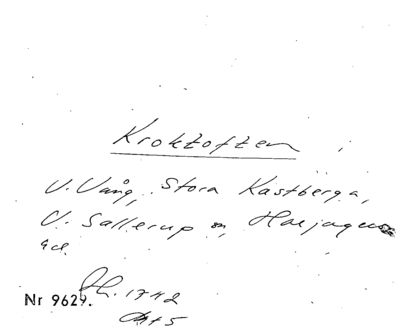 Kroktoften i
V. Vång, Stora Kastberga,
V. Sallerup o, Harjagers
hd.
Nr 9629.